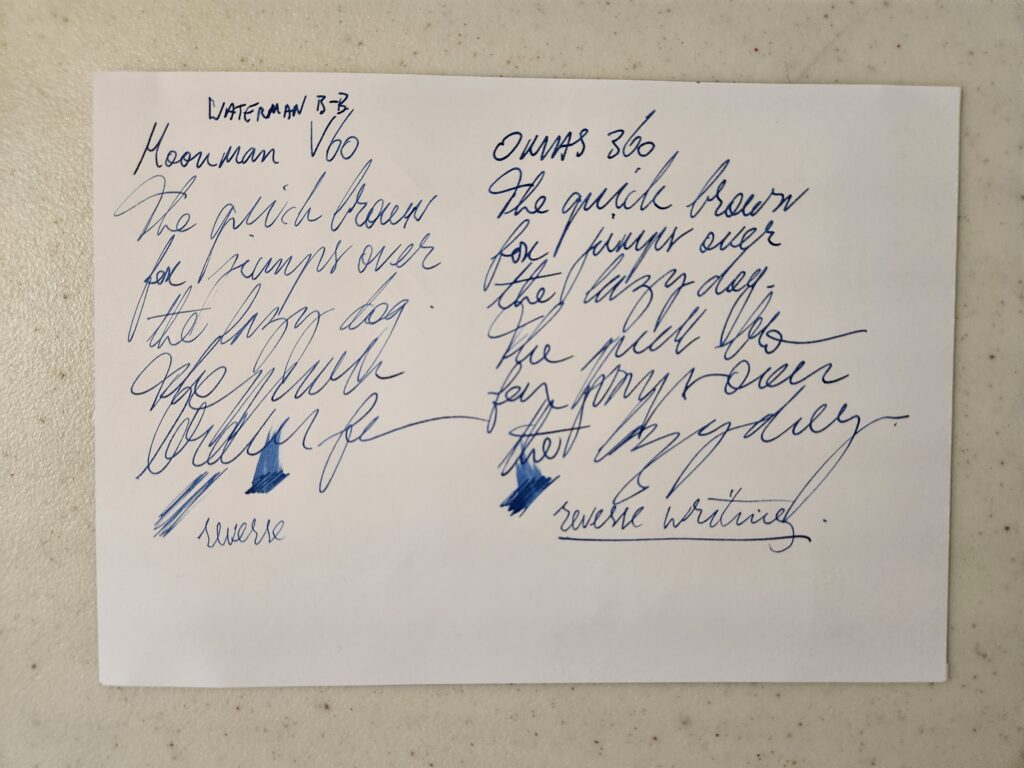 WATERMAN B-B
Moonman V60
The quick brown
fox jumps over
the lazy dog.
The quick
brown fo
reverse
OMAS 360
The quick brown
fox jumps over
the lazy dog.
The quick bro
fox jumps over
the lazy dog.
reverse writing.